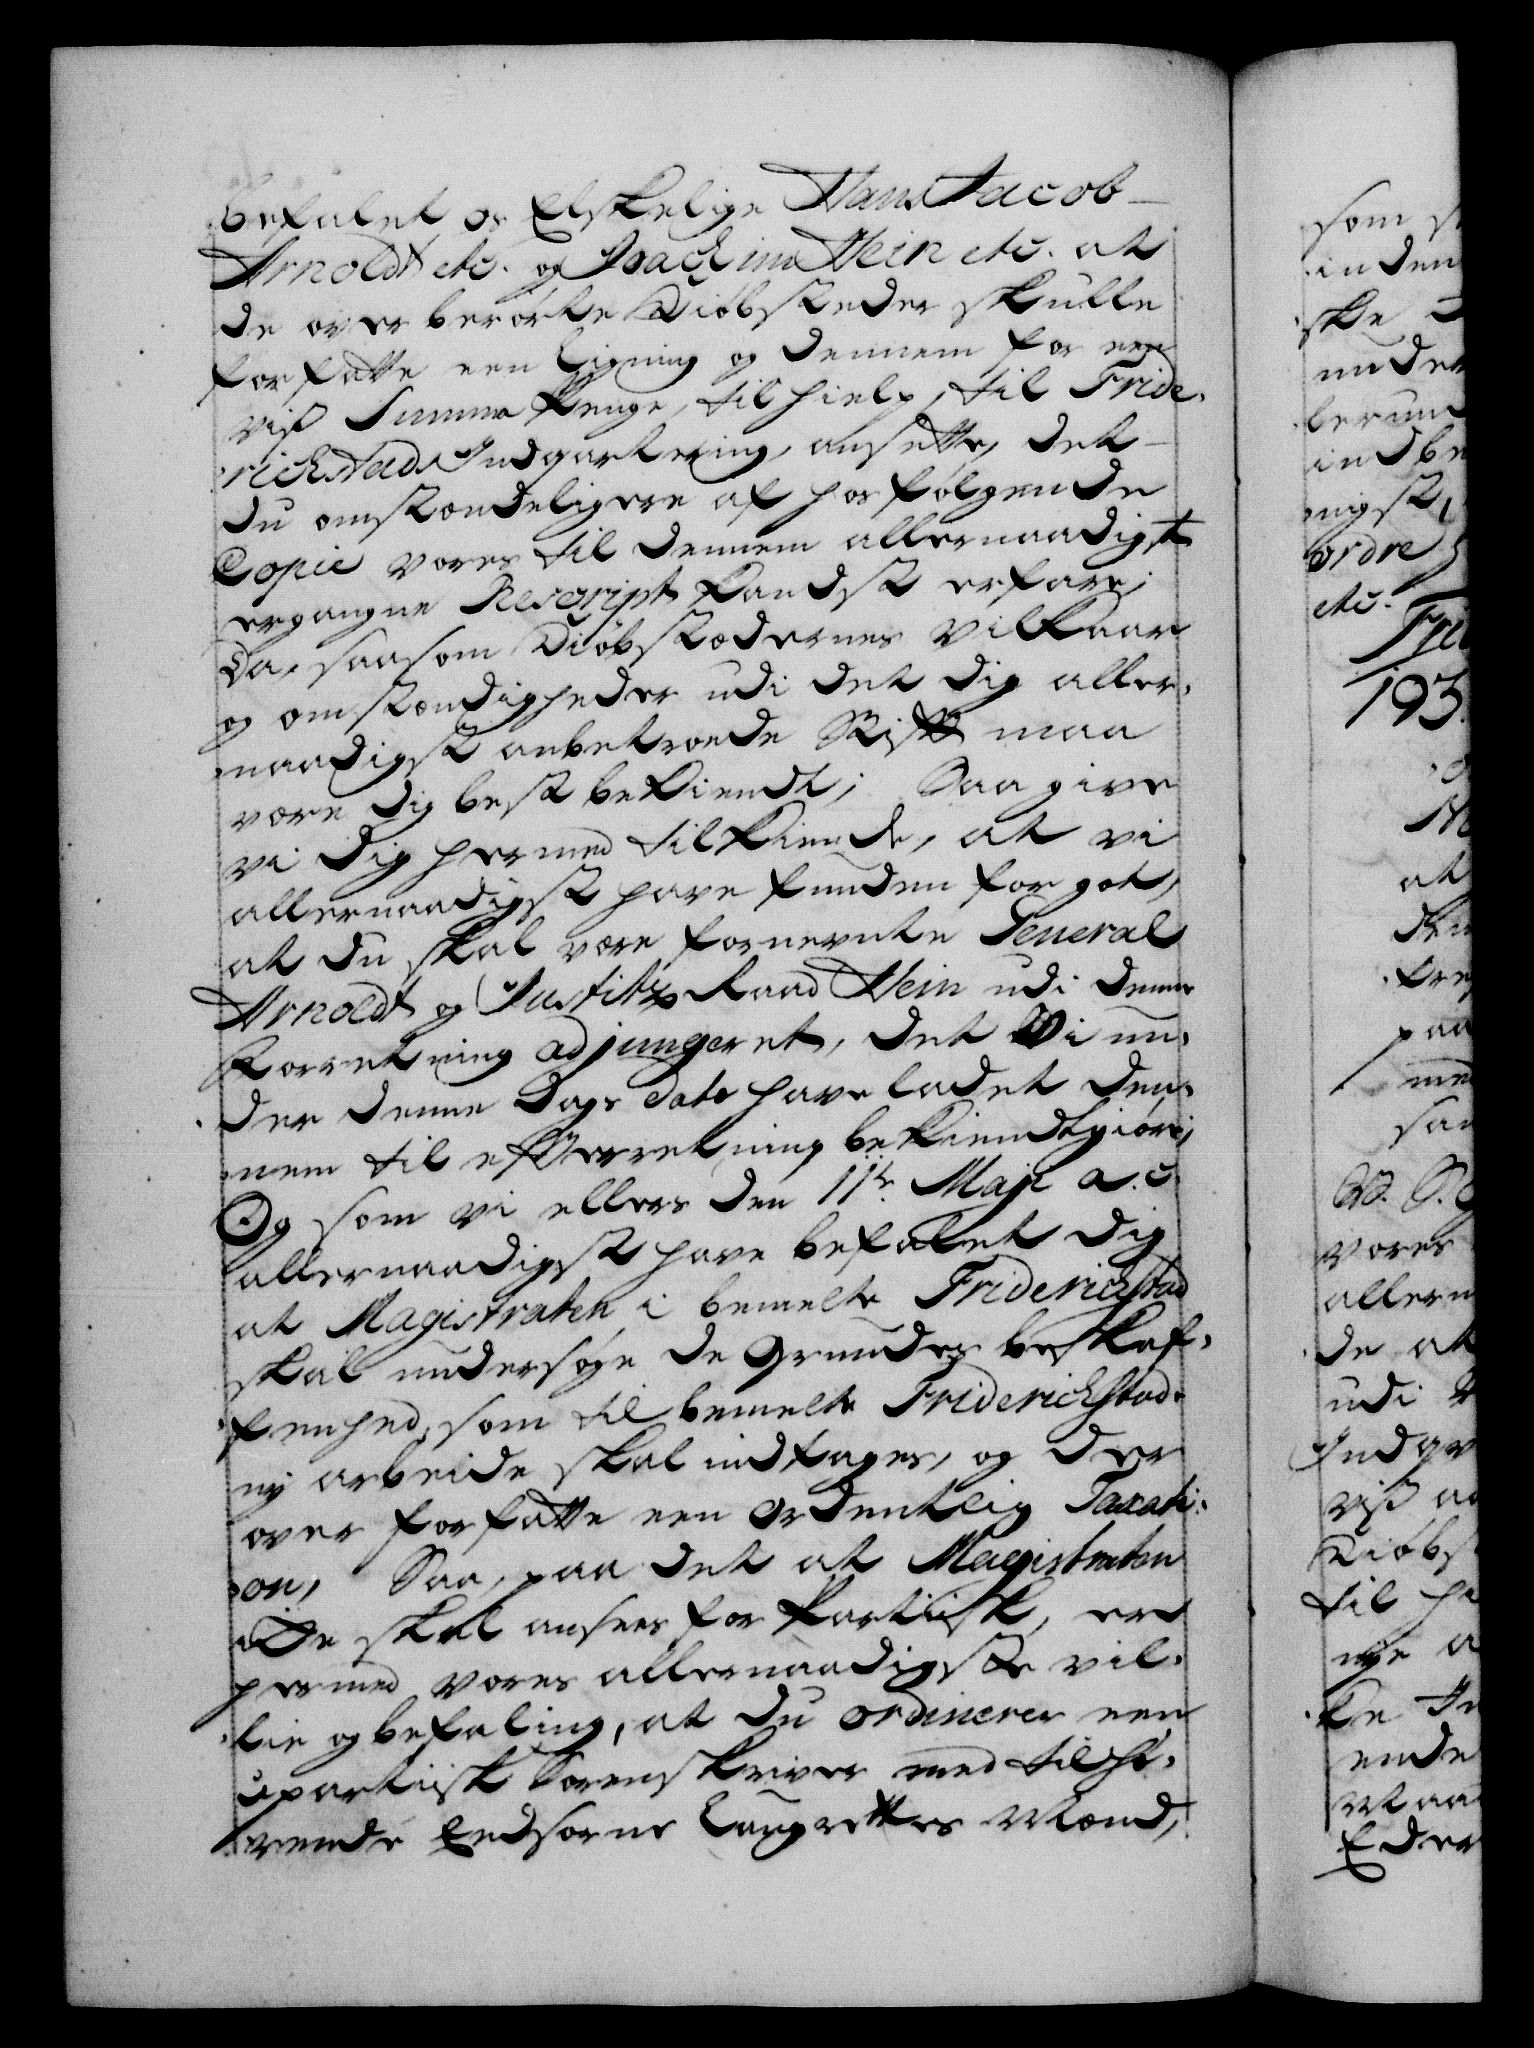 befalet os Elskelige Hans Jacob
Arnoldt etc. og Joachim Hein etc. at
de over berørte Kiøbsteder skulle
forfatte een Ligning og dennem for een
viss Summa Penge, til hielp, til Fride-
richstads Indqvartering, ansette, det
du omstændeligere af hosfølgende
Copie vores til dennem allernaadigst
ergangne Rescript kandst erfare;
Da, saasom Kiøbstædernes Vilkaar
og omstændigheder udi det dig aller-
naadigst anbetroede Stift maa
være dig best bekiendt; Saa give
vi dig hermed tilkiende, at vi
allernaadigst have funden for got,
at du skal være fornevnte General
Arnoldt og Justitz Raad Hein udi denne
Forretning adjungeret, det Vi un-
der denne Dags dato have ladet den-
nem til efterretning bekiendtgiøre;
Og som vi ellers den 11te Maji a. c.
allernaadigst have befalet dig
at Magistraten i bemelte Friderichstad
skal undersøge de Grunders beskaf-
fenhed, som til bemelte Friderichstads
ny arbeide skal indtages, og der
over forfatte een Ordentlig Taxati-
on, Saa, paa det at Magistraten
icke skal ansees for Partiisk, er
hermed vores allernaadigste vil-
lie og befaling, at du ordinerer een
upartiisk Sorenskriver med tilhø-
rende Eedsorne Laugrettes Mænd,
som
inden
ske
under
berum
indbe
nigst,
ordre
etc.
193.
at
paa
med
vores
allern
de at
udi
Indqv
viss
Kiøbs
til
nye a
ende
Eder